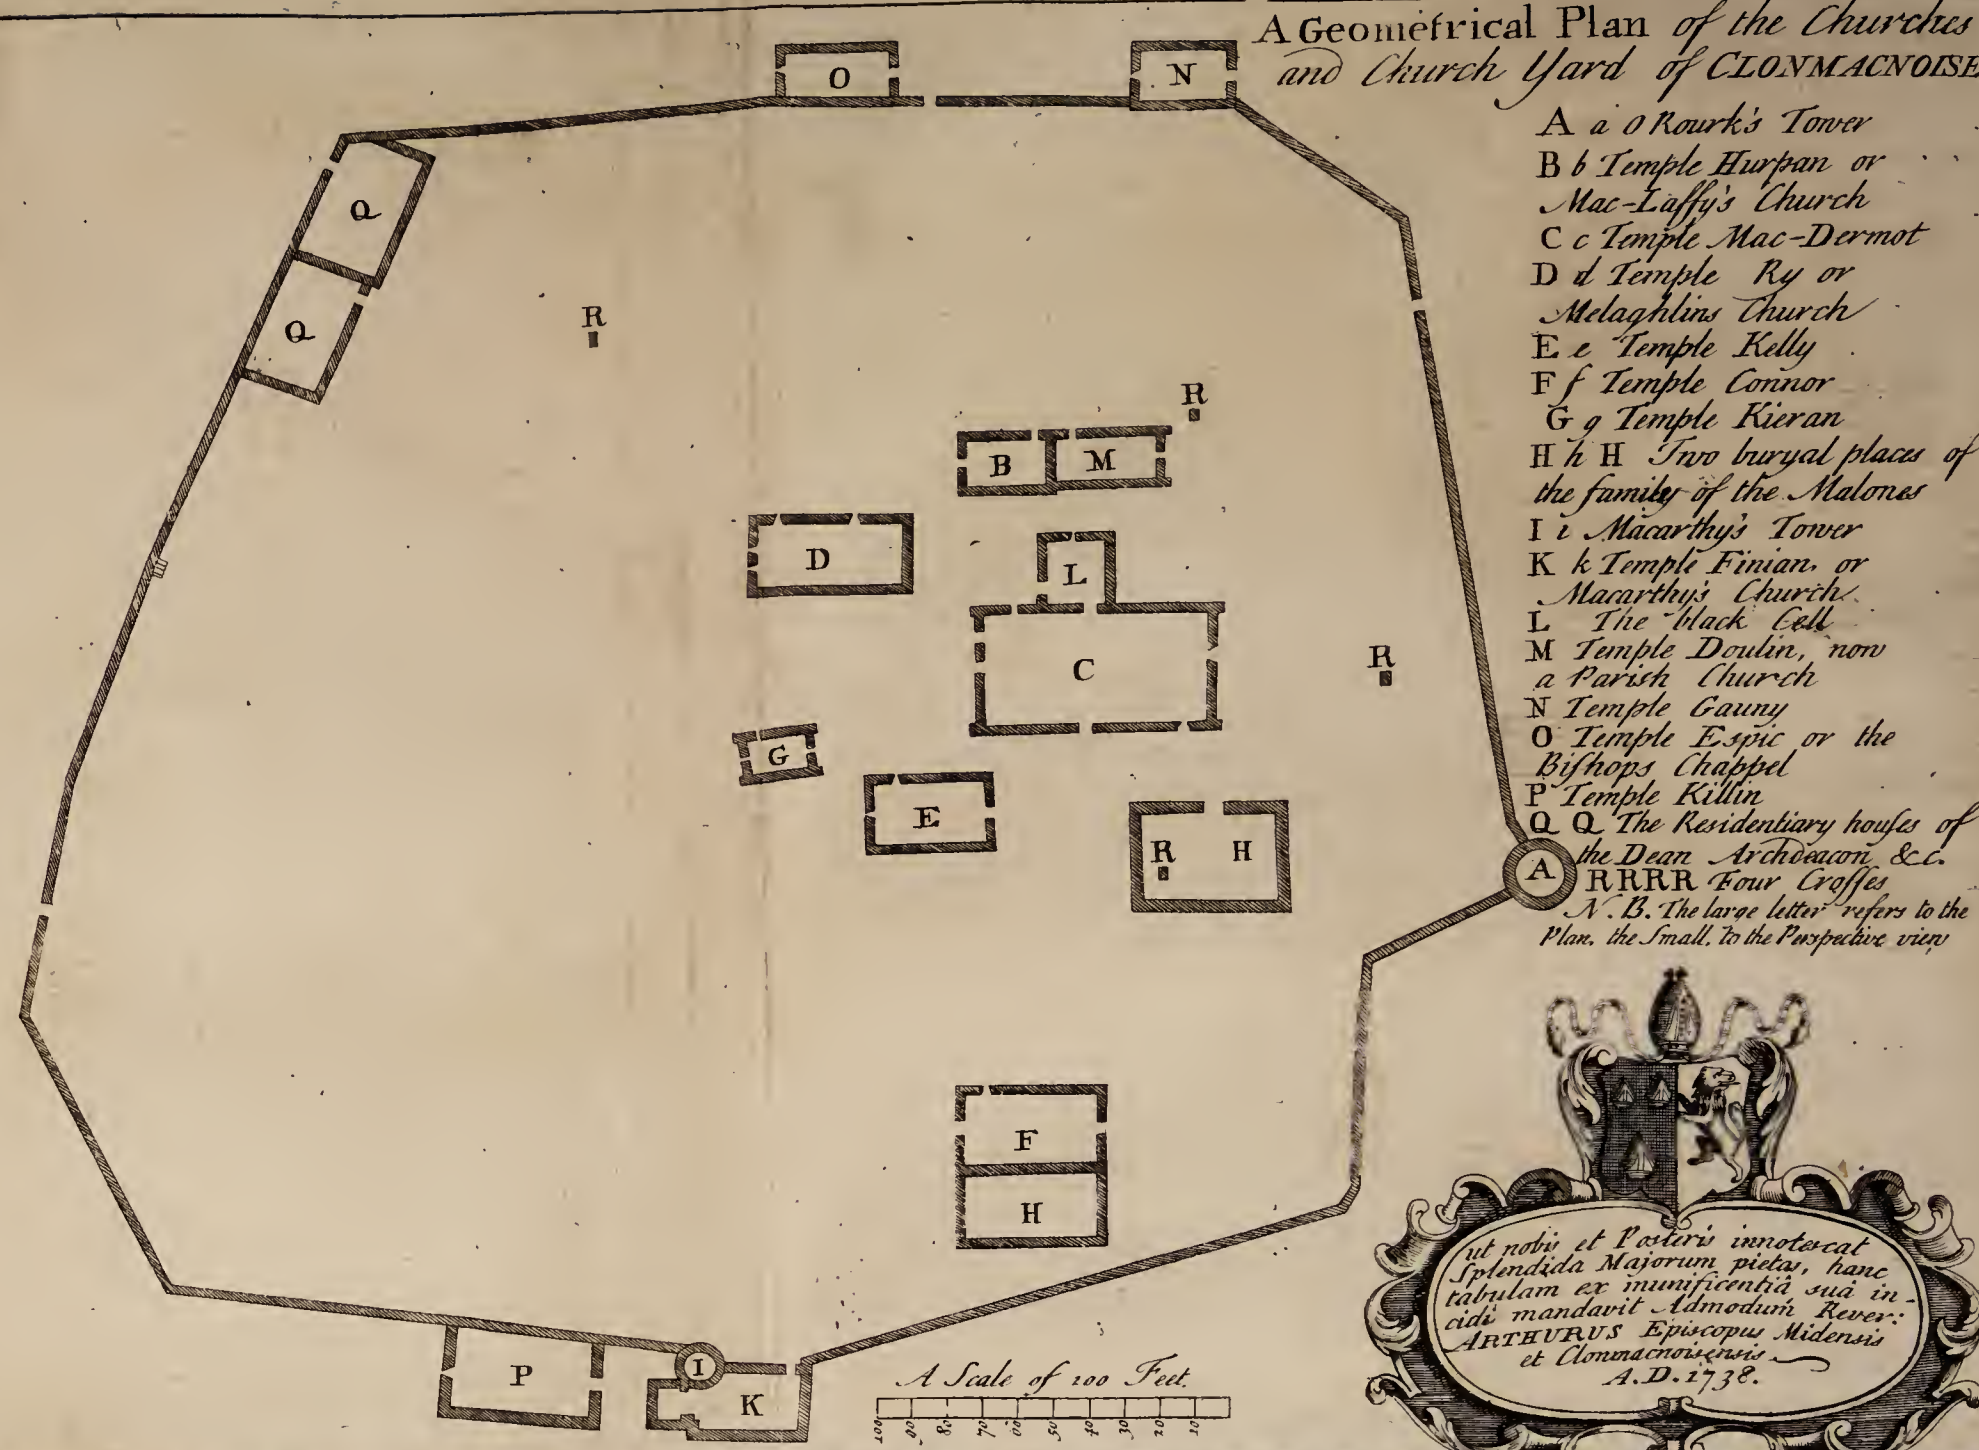 A Geometrical Plan of the Churches
and Church Yard of CLONMACNOISE
A a O Rourk's Tower
B b Temple Hurpan or
Mac-Laffy's Church
C c Temple Mac-Dermot
D d Temple Ry or
Melaghlins Church
E e Temple Kelly
F f Temple Connor
G g Temple Kieran
H h H Two buryal places of
the family of the Malones
I i Macarthy's Tower
K k Temple Finian, or
Macarthy's Church
L The black Cell
M Temple Doulin, now
a Parish Church
N Temple Gauny
O Temple Espic or the
Biſhops Chappel
P Temple Killin
Q Q The Residentiary houſes of
the Dean Archdeacon &c.
RRRR Four Croſſes
N.B. The large letter refers to the
Plan, the Small, to the Perspective view
O
N
Q
Q
R
R
B
M
D
L
C
R
G
E
R
H
A
F
H
P
I
K
A Scale of 100 Feet.
100
90
80
70
60
50
40
30
20
10
ut nobis et Posteris innotescat
Splendida Majorum pietas, hanc
tabulam ex munificentiâ suâ in-
cidi mandavit Admodum Rever:
ARTHURUS Episcopus Midensis
et Clonmacnoisensis
A.D. 1738.